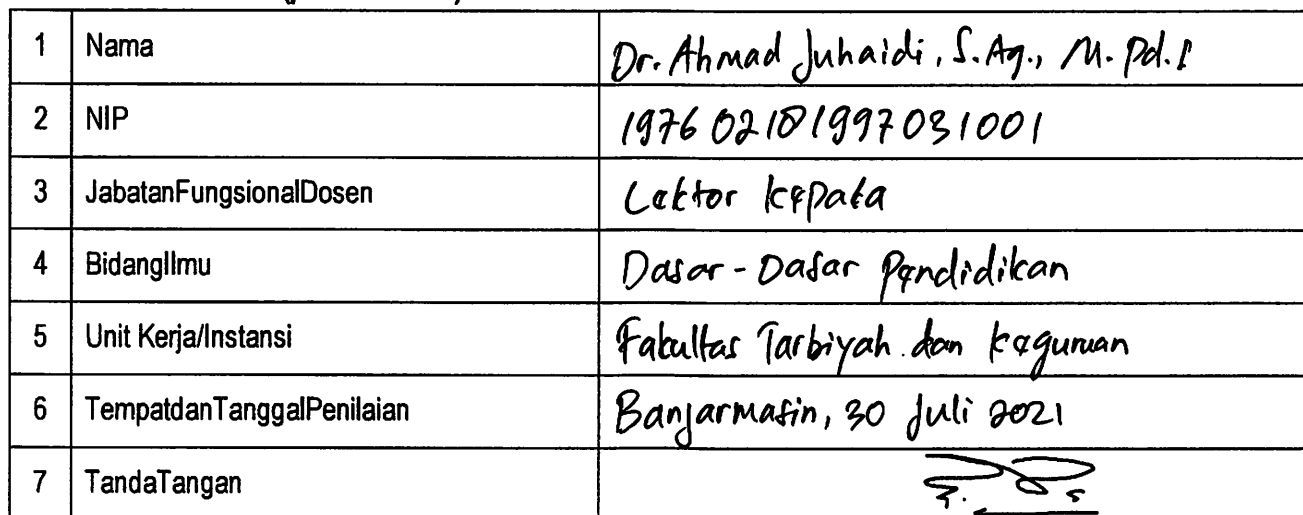 1 Nama Dr. Ahmad Juhaidi, S.Ag., M.Pd.I
2 NIP 197602181997031001
3 JabatanFungsionalDosen Lektor Kepala
4 BidangIlmu Dasar-Dasar Pendidikan
5 Unit Kerja/Instansi Fakultas Tarbiyah dan Keguruan
6 TempatdanTanggalPenilaian Banjarmasin, 30 Juli 2021
7 TandaTangan